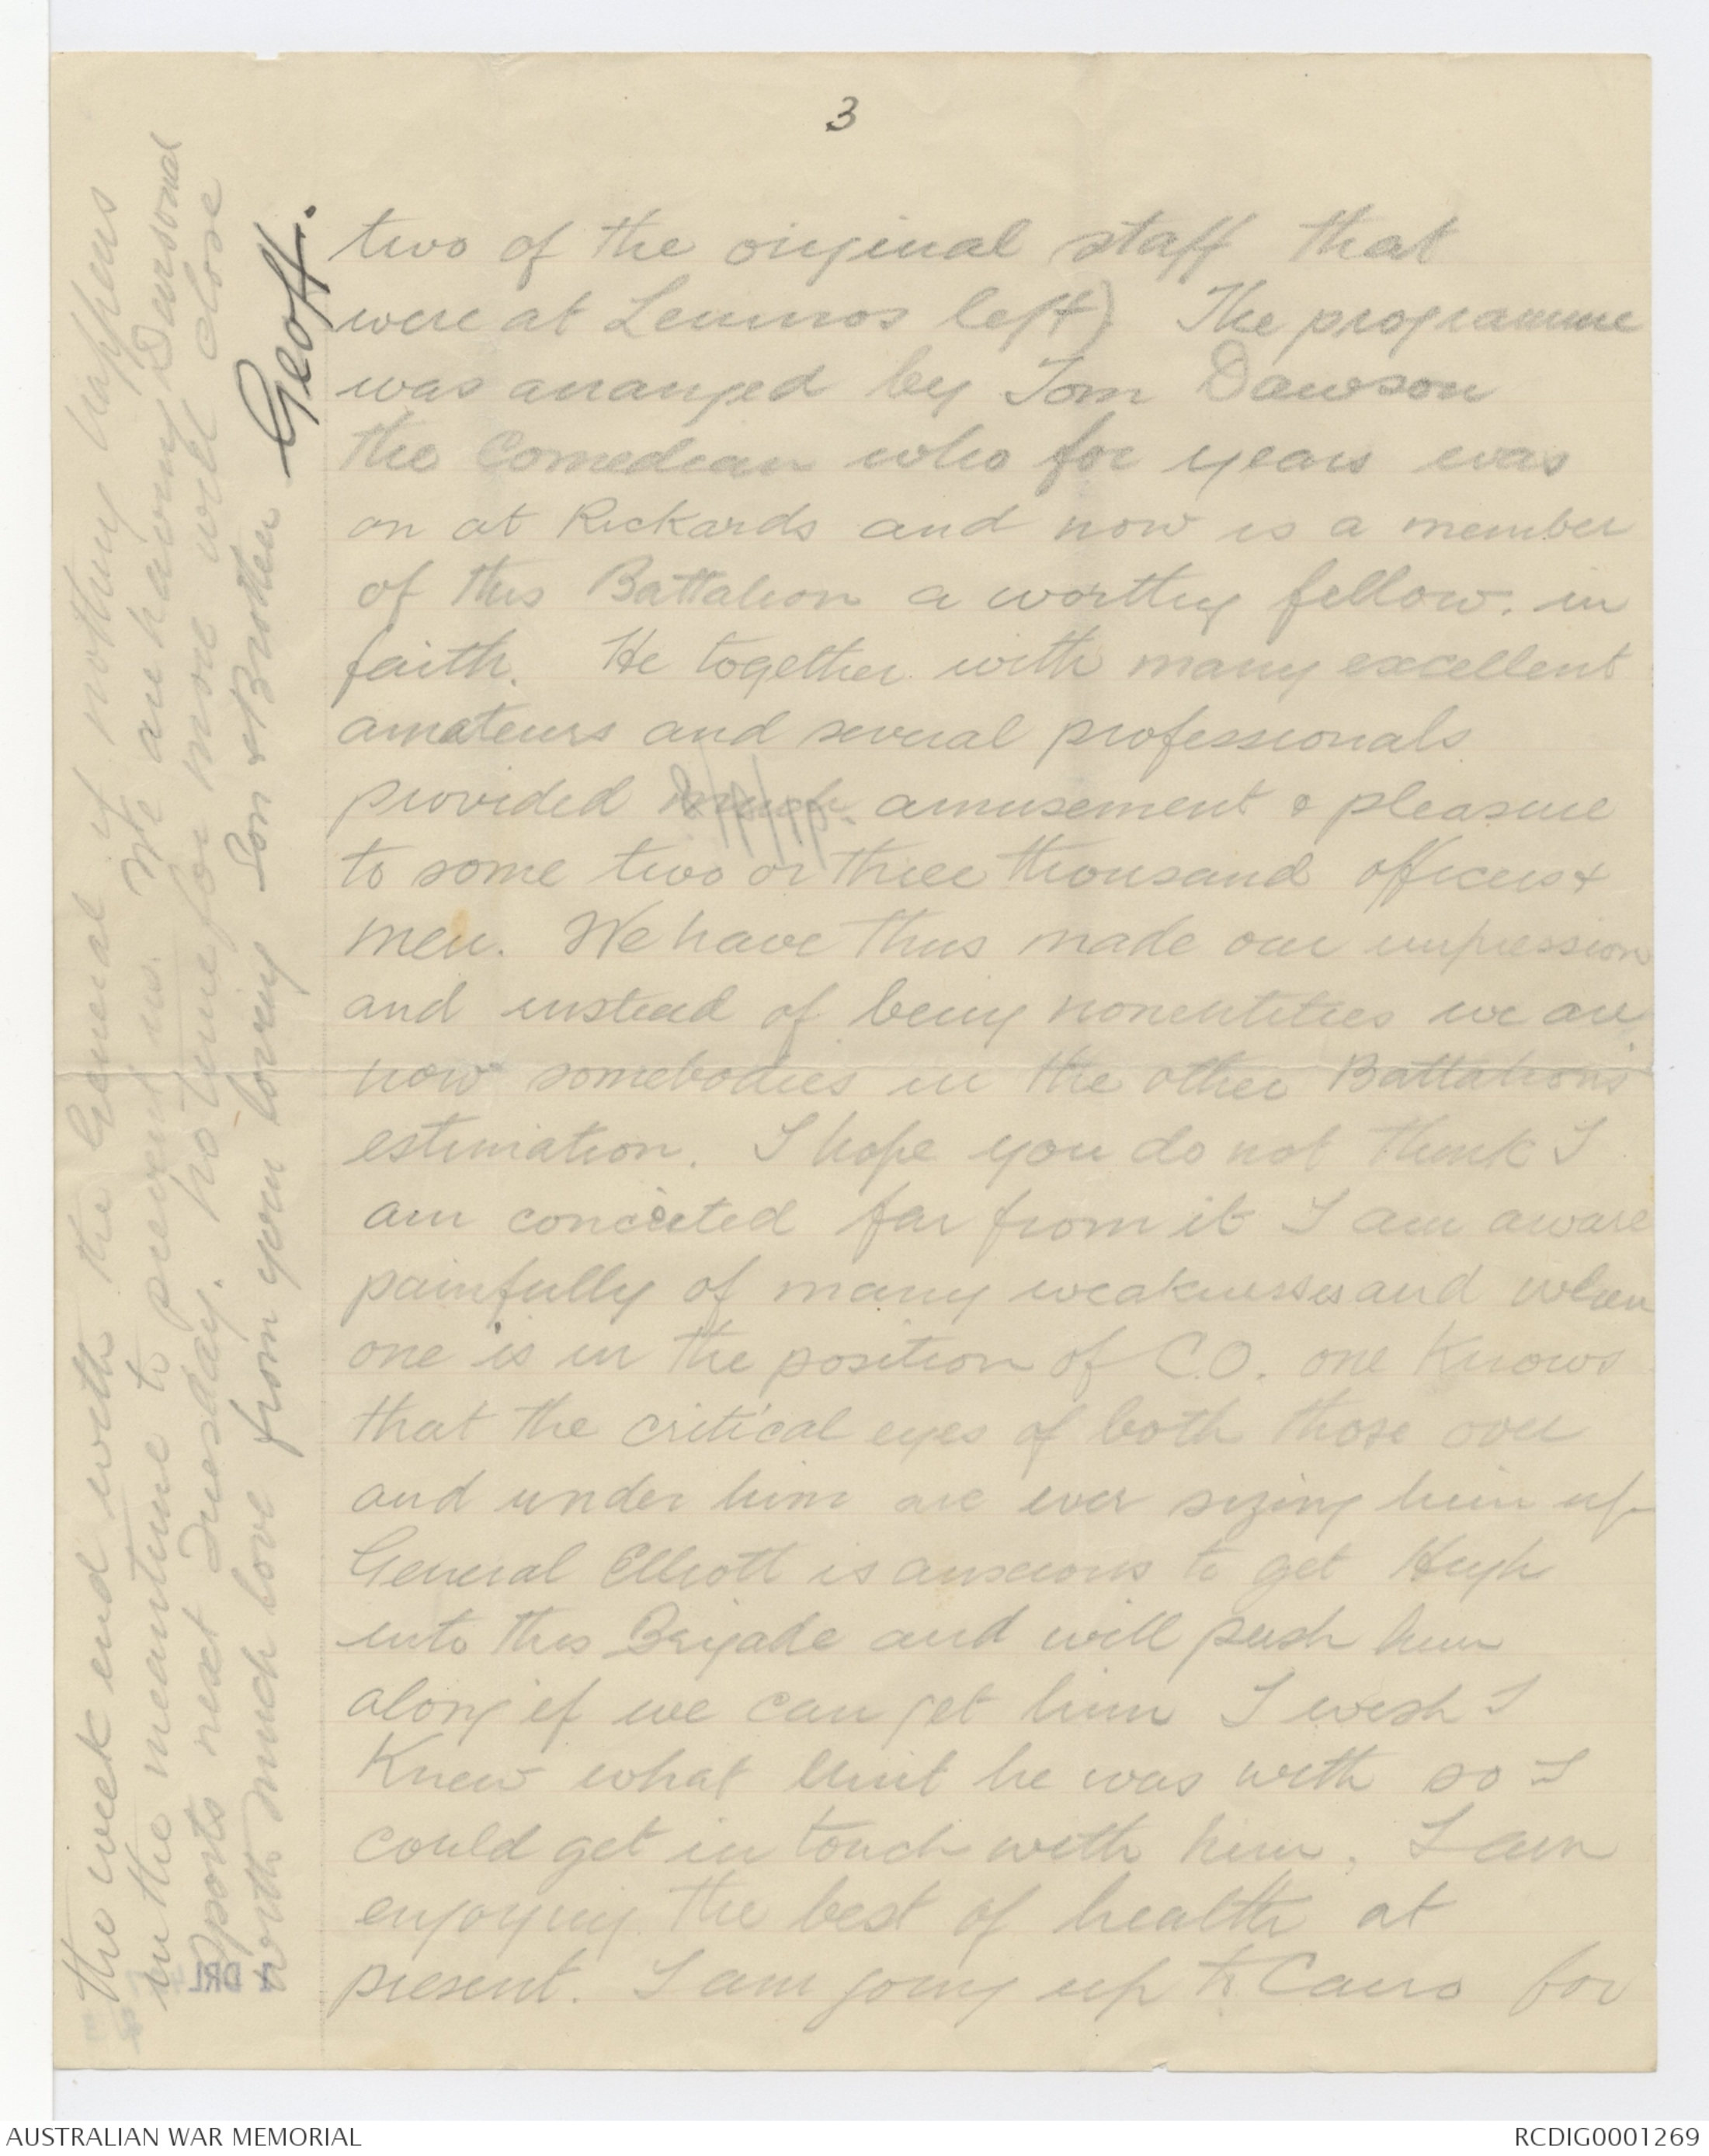 3
two of the original staff that
were at Lemnos left) The programme
was arranged by Tom Dawson
the Comedian who for years was
on at Rickards and now is a member
of this Battalion a worthy fellow. in
faith. He together with many excellent
amateurs and several professionals
provided amusement & pleasure
to some two or three thousand officers &
men. We have thus made our impression
and instead of being nonentities we are
now somebodies in the other Battalions'
estimation. I hope you do not think I
am conceited far from it I am aware
painfully of many weaknesses and when
one is in the position of C.O. one knows
that the critical eyes of both those over
and under him are ever sizing him up
General Elliott is anxious to get Hugh
into this Brigade and will push him
along if we can get him I wish I
Knew what Unit he was with so I
could get in touch with him, I am
enjoying the best of health at
present. I am going up to Cairo for
the week end with the General if nothing happens
in the meantime to prevent us. We are having Divisional
Sports next Tuesday. No time for more will close
with much love from your loving Son & Brother
Geoff.
1 DRL
AUSTRALIAN WAR MEMORIAL
RCDIG0001269